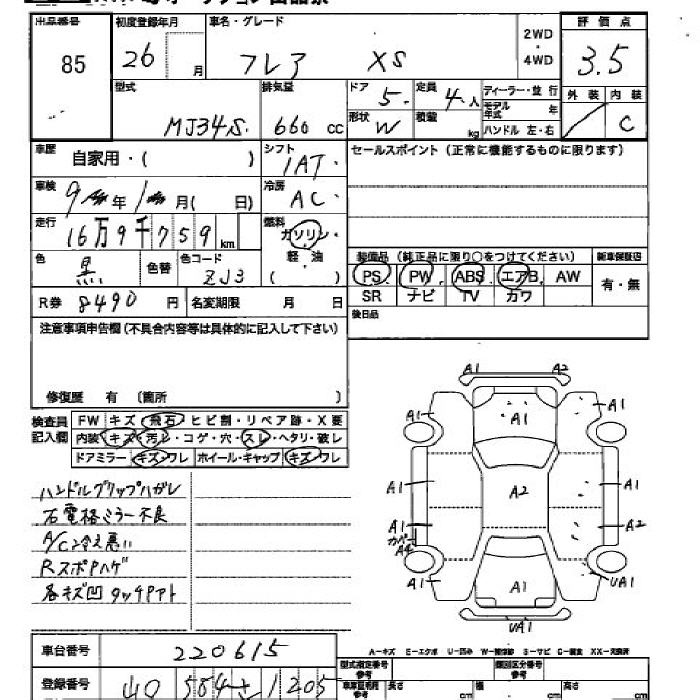 出品番号 初度登録年月 車名・グレード 評価点
85 26 月 フレア XS 2WD・4WD 3.5
型式 排気量 ドア 定員 ディーラー・並行 外装 内装
MJ34S. 660 cc 5. 4 人 モデル年式 年 C
形状 W 積載 kg ハンドル 左・右
車歴 自家用・( ) シフト 1AT. セールスポイント (正常に機能するものに限ります)
車検 9 年 1 月( 日) 冷房 AC.
走行 16万9千759km 燃料 ガソリン・軽油 ( )
色 黒 色替 色コード ZJ3 装備品 (純正品に限り○をつけてください) 新車保証書
PS PW ABS エアB AW 有・無
R券 8490 円 名変期限 月 日 SR ナビ TV カワ
注意事項申告欄 (不具合内容等は具体的に記入して下さい) 後日品
修復歴 有 〔箇所 〕
検査員記入欄 FW キズ・飛石・ヒビ割・リペア跡・X要
内装 キズ・汚レ・コゲ・穴・スレ・ヘタリ・破レ
ドアミラー キズ・ワレ ホイール・キャップ キズ・ワレ
A1 A2
A1 A1 A1
A1 A2 A1
A1 カバーA4 A2
A1 A1 UA1
UA1
ハンドルグリップハガレ
右電格ミラー不良
A/C冷え悪い
RスポPハゲ
各キズ凹タッチPアト
A-キズ E-エクボ U-凹み W-補修跡 S-サビ C-腐食 XX-交換済
車台番号 220615 型式指定番号 参考 類別区分番号 参考
登録番号 長さ cm 幅 cm 高さ cm